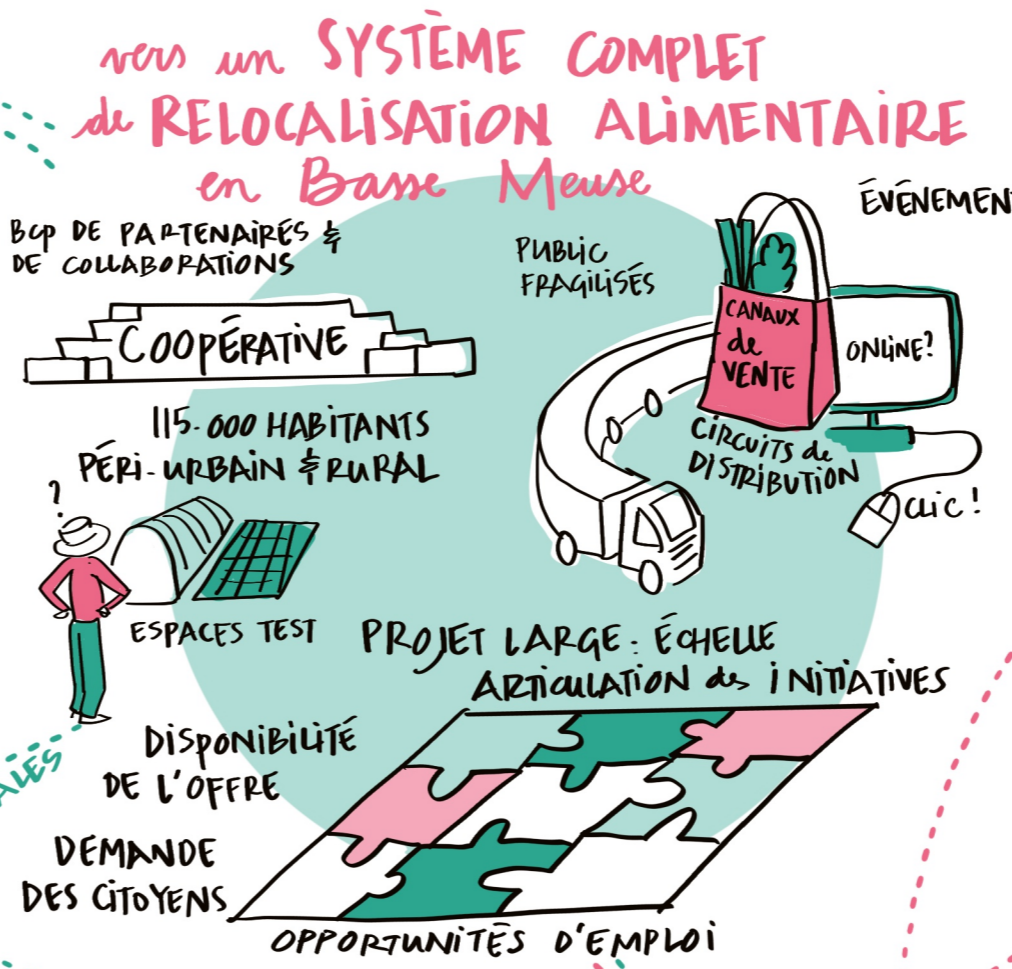 vers un SYSTÈME COMPLET
de RELOCALISATION ALIMENTAIRE
en Basse Meuse
BCP DE PARTENAIRÉS &
DE COLLABORATIONS
COOPÉRATIVE
115.000 HABITANTS
PÉRI-URBAIN & RURAL
?
ESPACES TEST
PUBLIC
FRAGILISÉS
ÉVÉNEMENT
CANAUX
de
VENTE
ONLINE?
CIRCUITS de
DISTRIBUTION
CLIC!
PROJET LARGE: ÉCHELLE
ARTICULATION des INITIATIVES
DISPONIBILITÉ
DE L'OFFRE
ALES
DEMANDE
DES CITOYENS
OPPORTUNITÉS D'EMPLOI